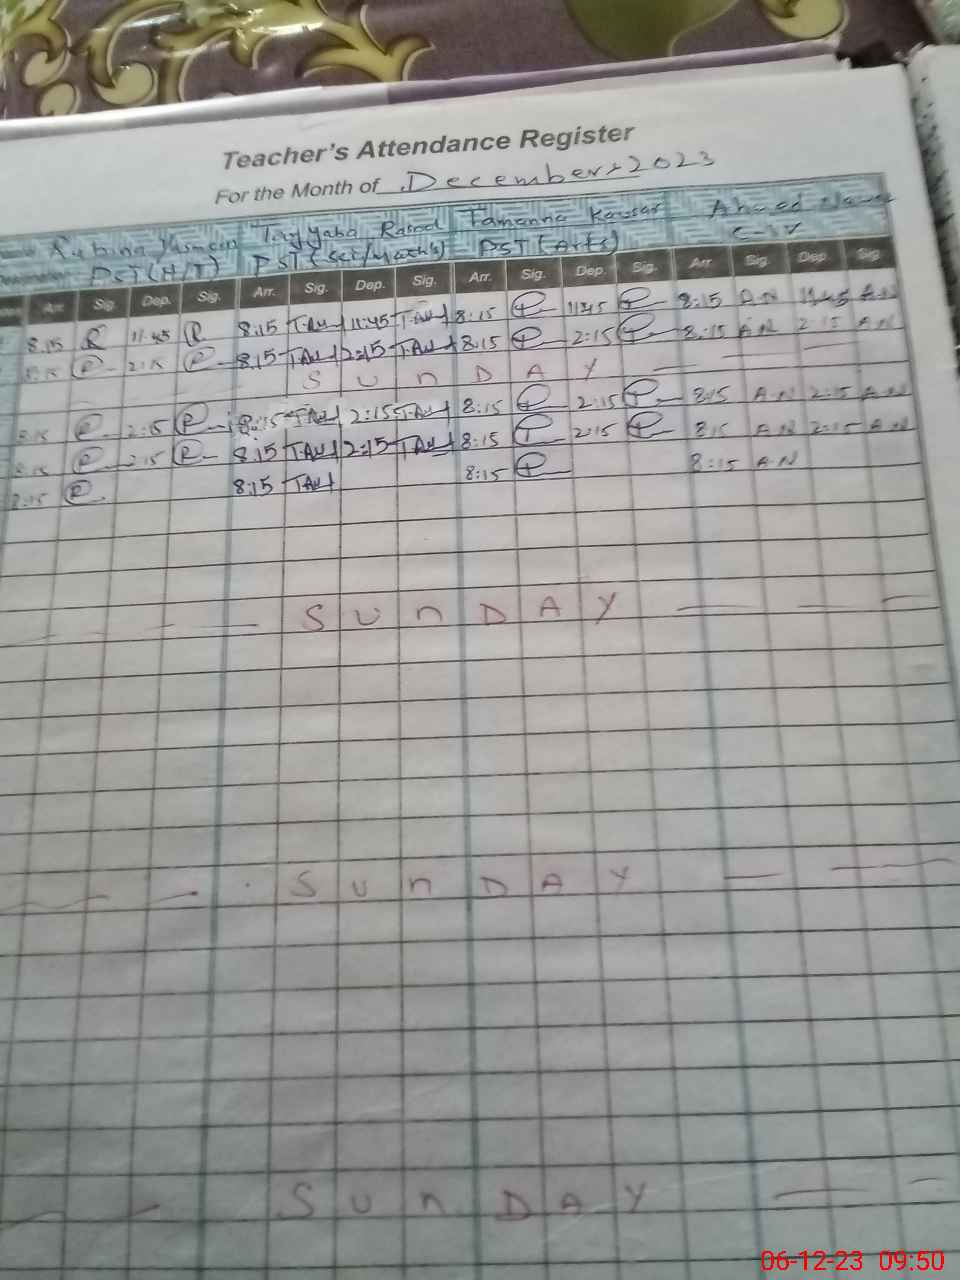 Teacher's Attendance Register
For the Month of December, 2023
Rubina Yasmeen Tayyaba Rasool Tamanna Kausar Ahmed Nawaz
PST(H/T) PST(Sci/Maths) PST(Arts) C-IV
Arr. Sig. Dep. Sig. Arr. Sig. Dep. Sig. Arr. Sig. Dep. Sig. Arr Sig. Dep Sig
8:15 R 11:45 R 8:15 11:45 8:15 T 11:45 T 8:15 A.N 11:45 A.N
8:15 R 2:15 R 8:15 2:15 8:15 T 2:15 T 8:15 A.N 2:15 A.N
SUNDAY
8:15 R 2:15 R 8:15 2:15 8:15 T 2:15 T 8:15 A.N 2:15 A.N
8:15 R 2:15 R 8:15 2:15 8:15 T 2:15 T 8:15 A.N 2:15 A.N
8:15 R 8:15 8:15 T 8:15 A.N
SUNDAY
SUNDAY
SUNDAY
06-12-23 09:50